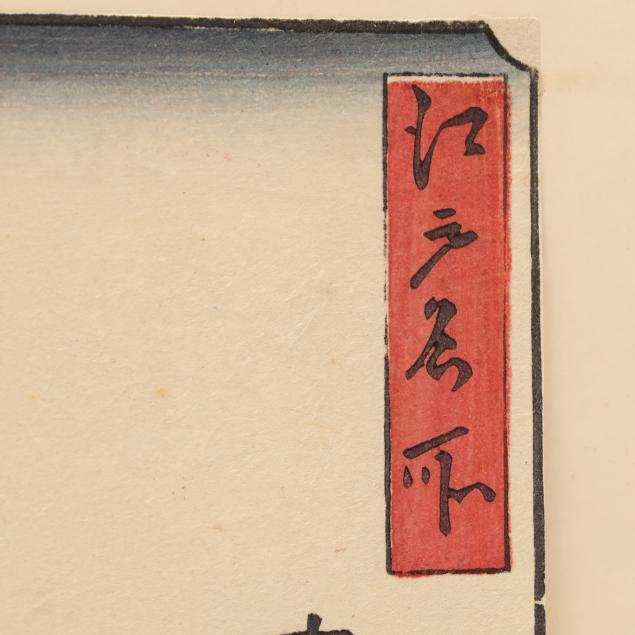 江戸名所